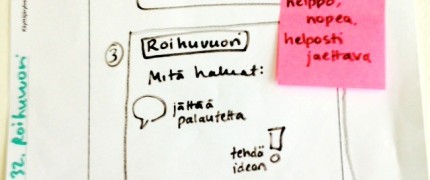 helppo,
nopea,
helposti
jaettava
3
Roihuvuori
Mitä haluat:
jättää
palautetta
!
tehdä
idean
32. Roihuvuori